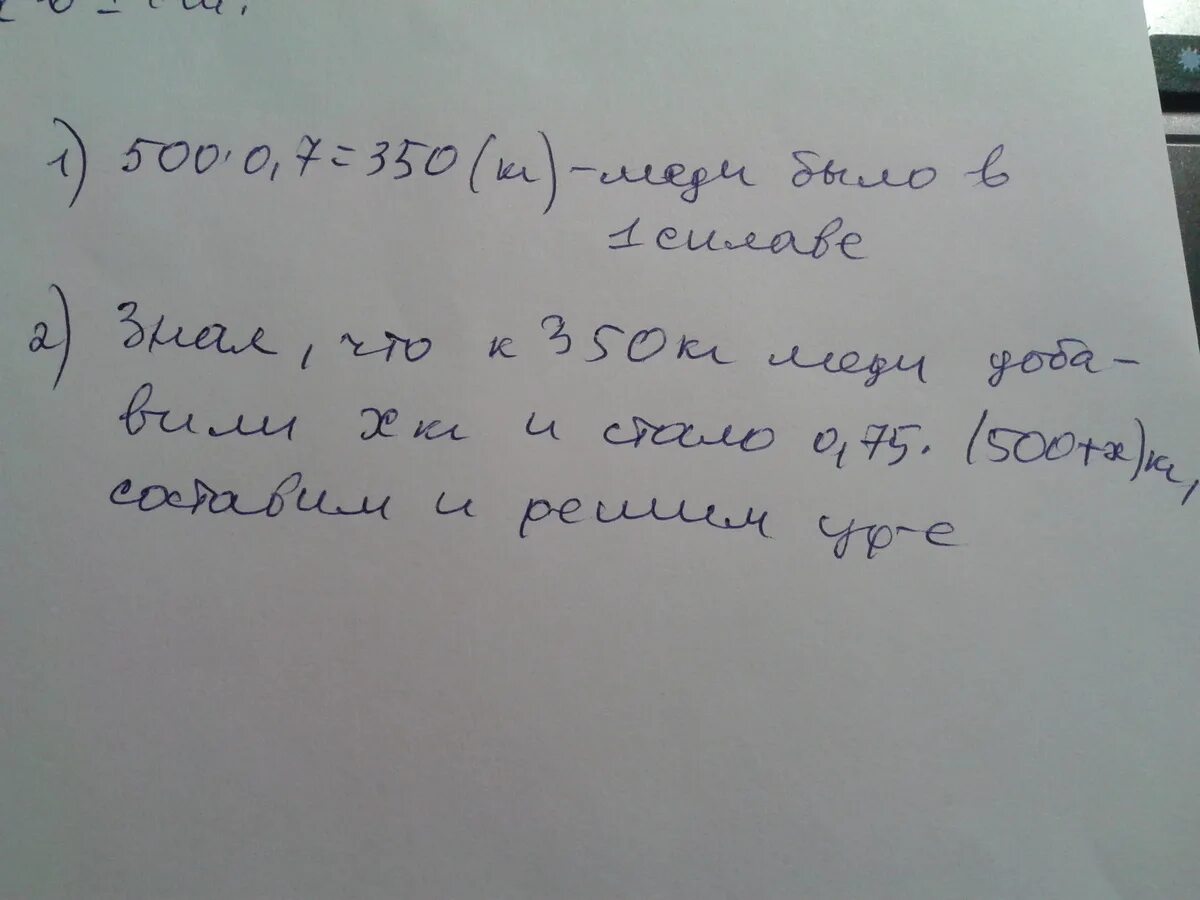 1) 500·0,7=350(кг)-меди было в
1 сплаве
2) Зная, что к 350кг меди доба-
вили х кг и стало 0,75·(500+х)кг,
составим и решим ур-е